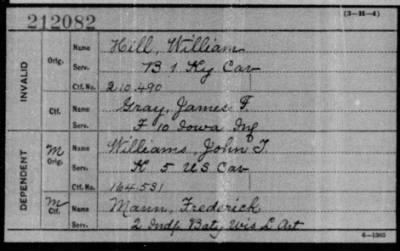 212082 (3—H—4)
INVALID
Orig. Name Hill, William
Serv. B 1 Ky Cav
Ctf. No. 210.490
Ctf. Name Gray, James F.
Serv. F 10 Iowa Inf
DEPENDENT
M Orig. Name Williams, John T.
Serv. K 5 US Cav
Ctf. No. 164.531
M Ctf. Name Mann, Frederick
Serv. 2 Indp. Baty Wis L Art
6—1905